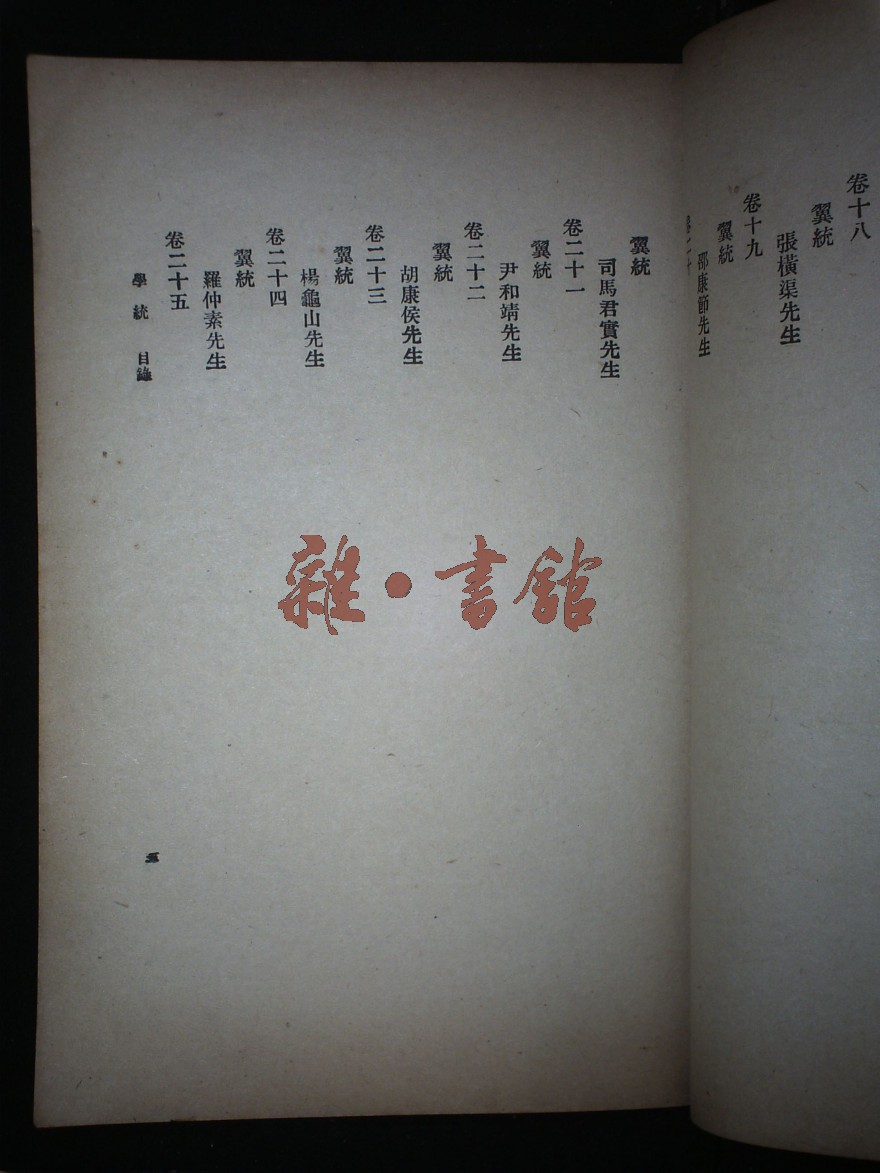 卷十八
翼統
張橫渠先生
卷十九
翼統
邵康節先生
翼統
司馬君實先生
卷二十一
翼統
尹和靖先生
卷二十二
翼統
胡康侯先生
卷二十三
翼統
楊龜山先生
卷二十四
翼統
羅仲素先生
卷二十五
學統 目錄
五
雜・書館